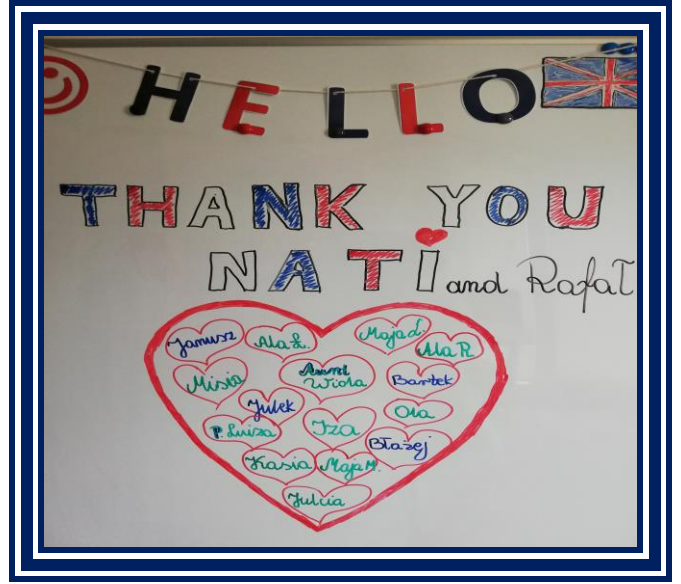 HELLO
THANK YOU
NATI and Rafał
Janusz Ala Ł. Maja L. Ala R.
Misia Aunt Wiola Bartek
Julek Ola
P. Luiza Iza Błażej
Kasia Maja M.
Julcia